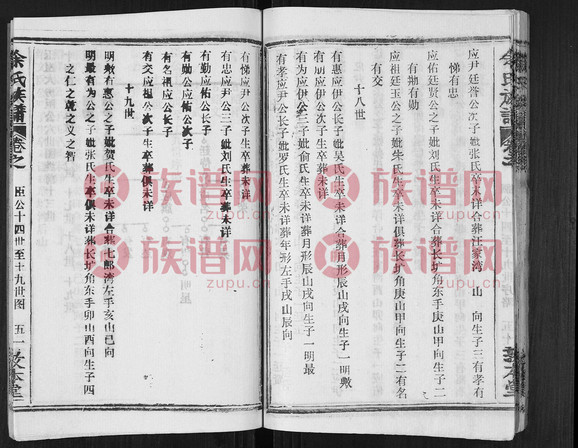 应尹廷誉公次子妣张氏生卒未详合葬汪家湾 山 向生子三有孝有
悌有忠
应佑廷贤公之子妣刘氏生卒未详合葬长圹角东手庚山甲向生子二
有朔有勋
应祖廷玉公之子妣朱氏生卒未详俱葬长圹角庚山甲向生子二有名
有交
十八世
有惠应伊公长子妣吴氏生卒未详合葬月形辰山戌向生子一明敭
有朋应伊公次子生卒葬未详
有为应伊公三子妣俞氏生卒未详葬月形辰山戌向生子一明最
有孝应尹公长子妣罗氏生卒未详葬年形左手戌山辰向
有悌应尹公次子生卒葬未详
有忠应尹公三子妣刘氏生卒葬未详
有勤应佑公长子
有勋公应佑公次子
有名祖应公长子
有交应祖公次子生卒葬俱未详
十九世
明敭有惠公之子妣贺氏生卒未详合葬七郎湾左手亥山巳向
明最有为公之子妣张氏生卒俱未详葬长圹角东手卯山西向生子四
之仁之乾之义之智
余氏族谱
卷之
臣公十四世至十九世图
五一
族谱网
zupu.cn